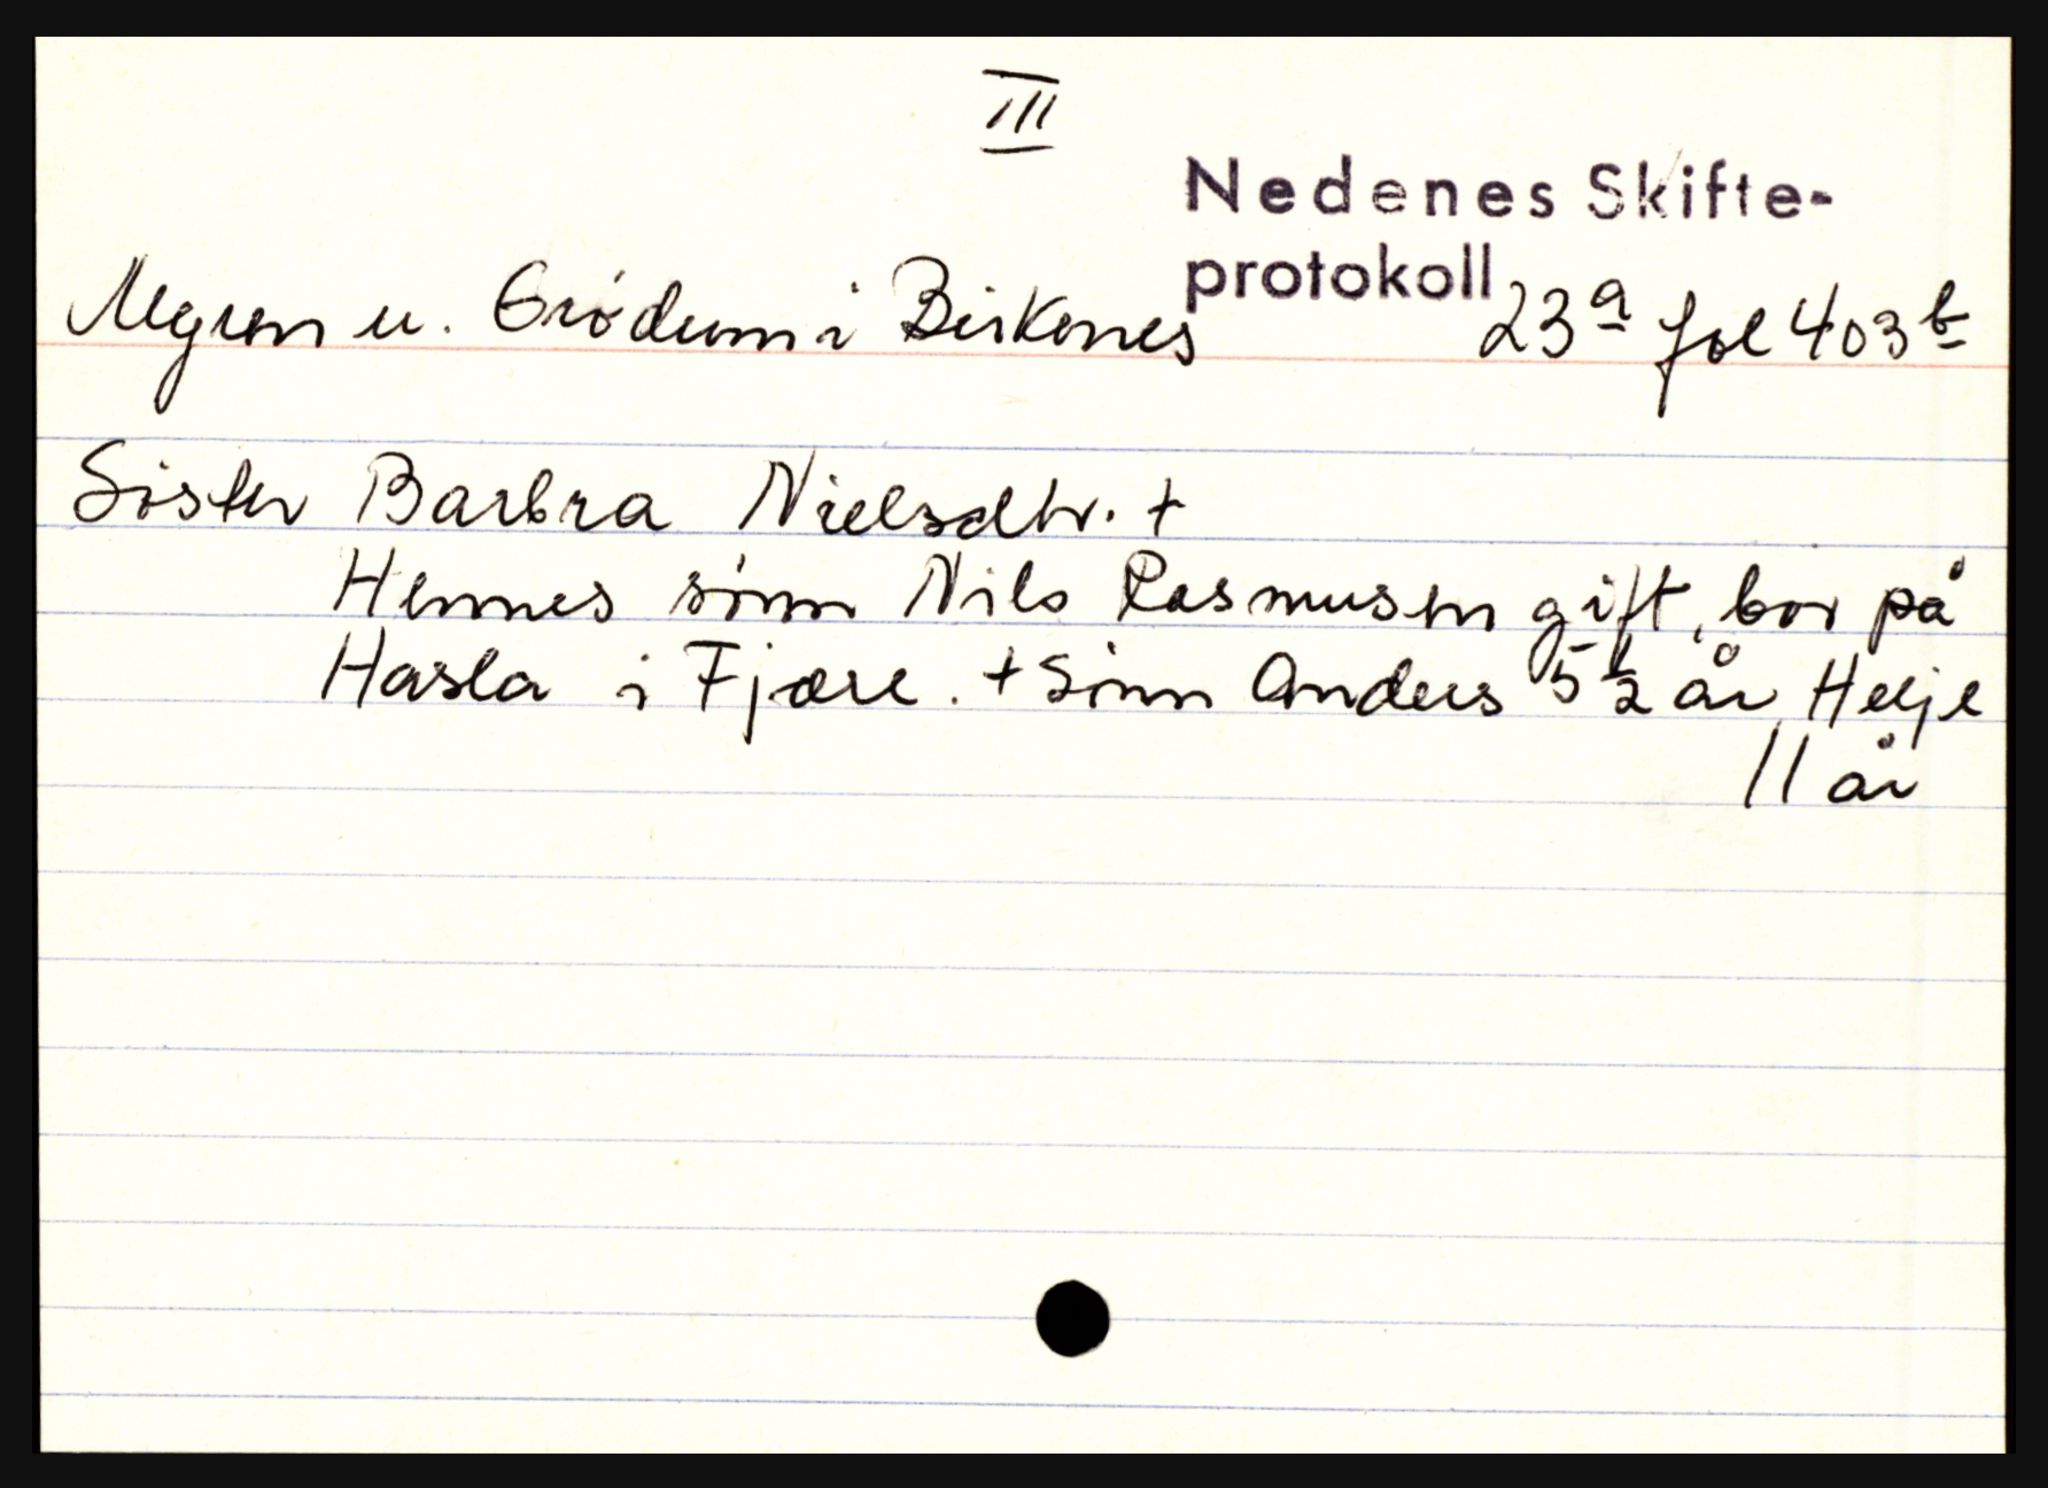 III
Nedenes Skifte-
protokoll
Myren u. Grødum i Birkenes 23a fol 403b
Søster Barbra Nielsdtr. +
Hennes sønn Nils Rasmusen gift, bor på
Hasla i Fjære. + Sønn Anders 5 1/2 år, Helje
11 år